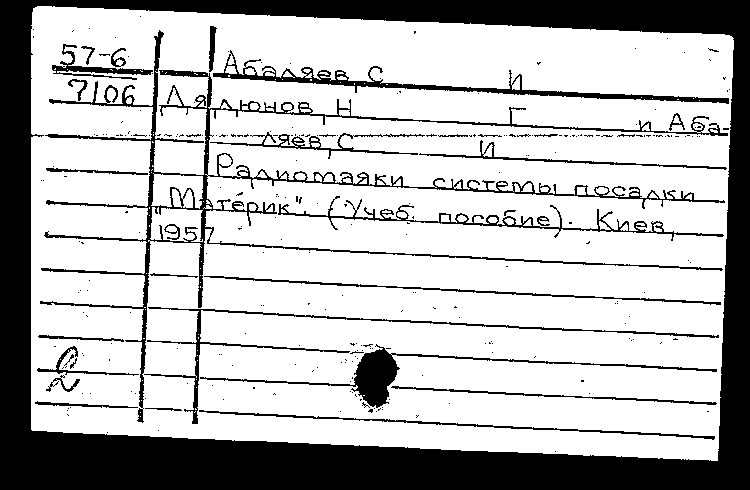 57-6 Абаляев, С И
7106 Дялюнов, Н Г и Аба-
ляев, С И
Радиомаяки системы посадки
"Материк". (Учеб. пособие). Киев,
1957
2